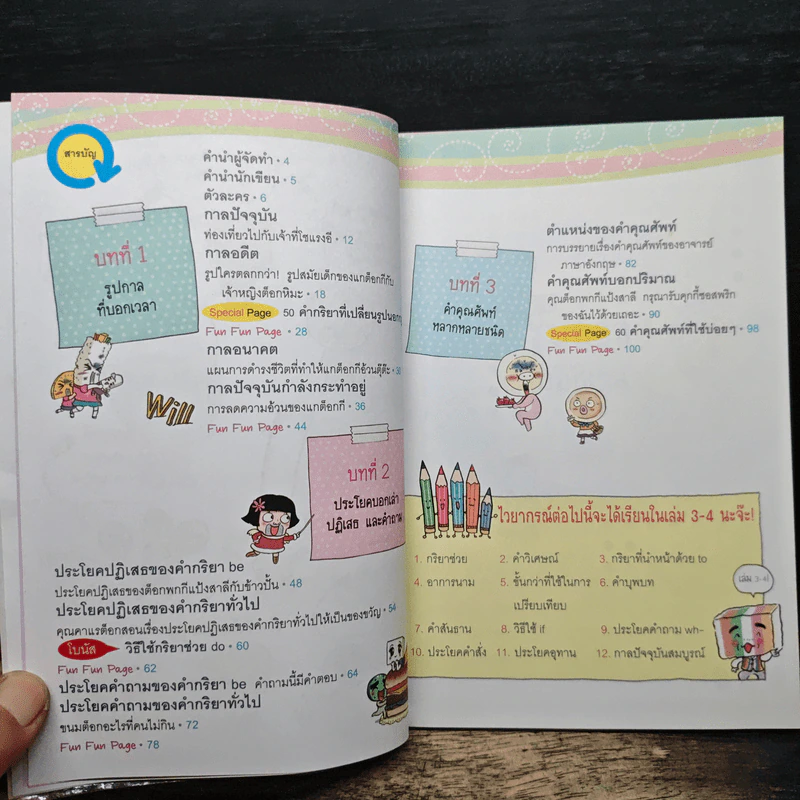 สารบัญ
คำนำผู้จัดทำ • 4
คำนำนักเขียน • 5
ตัวละคร • 6
บทที่ 1
รูปกาล
ที่บอกเวลา
กาลปัจจุบัน
ท่องเที่ยวไปกับเจ้าที่ไชแรงอี • 12
กาลอดีต
รูปใครตลกกว่า! รูปสมัยเด็กของแกต็อกกีกับ
เจ้าหญิงต็อกหิมะ • 18
Special Page 50 คำกริยาที่เปลี่ยนรูปนอก
Fun Fun Page • 28
กาลอนาคต
แผนการดำรงชีวิตที่ทำให้แกต็อกกีอ้วนตุ๊ต๊ะ •
กาลปัจจุบันกำลังกระทำอยู่
การลดความอ้วนของแกต็อกกี • 36
Fun Fun Page • 44
Will
บทที่ 2
ประโยคบอกเล่า
ปฏิเสธ และคำถาม
ประโยคปฏิเสธของคำกริยา be
ประโยคปฏิเสธของต็อกพกกีแป้งสาลีกับข้าวปั้น • 48
ประโยคปฏิเสธของคำกริยาทั่วไป
คุณคาแรต็อกสอนเรื่องประโยคปฏิเสธของคำกริยาทั่วไปให้เป็นของขวัญ • 54
โบนัส วิธีใช้กริยาช่วย do • 60
Fun Fun Page • 62
ประโยคคำถามของคำกริยา be คำถามนี้มีคำตอบ • 64
ประโยคคำถามของคำกริยาทั่วไป
ขนมต็อกอะไรที่คนไม่กิน • 72
Fun Fun Page • 78
บทที่ 3
คำคุณศัพท์
หลากหลายชนิด
ตำแหน่งของคำคุณศัพท์
การบรรยายเรื่องคำคุณศัพท์ของอาจารย์
ภาษาอังกฤษ • 82
คำคุณศัพท์บอกปริมาณ
คุณต็อกพกกีแป้งสาลี กรุณารับคุกกี้ซอสพริก
ของฉันไว้ด้วยเถอะ • 90
Special Page 60 คำคุณศัพท์ที่ใช้บ่อยๆ • 98
Fun Fun Page • 100
ไวยากรณ์ต่อไปนี้จะได้เรียนในเล่ม 3-4 นะจ๊ะ!
1. กริยาช่วย 2. คำวิเศษณ์ 3. กริยาที่นำหน้าด้วย to
4. อาการนาม 5. ขั้นกว่าที่ใช้ในการ 6. คำบุพบท
เปรียบเทียบ
7. คำสันธาน 8. วิธีใช้ if 9. ประโยคคำถาม wh-
10. ประโยคคำสั่ง 11. ประโยคอุทาน 12. กาลปัจจุบันสมบูรณ์
เล่ม 3-4!